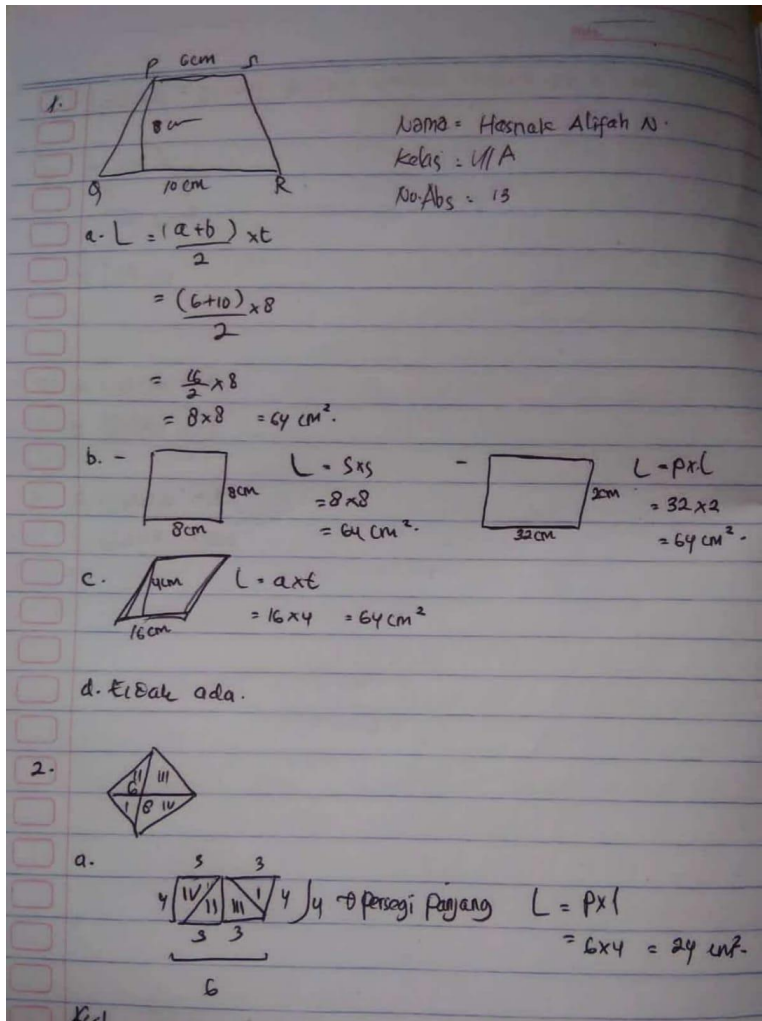 1.
P 6cm S
8 cm
Q 10 cm R
Nama = Hasnak Alifah N.
Kelas : VIIA
No.Abs : 13
a. L = (a+b) × t
2
= (6+10) × 8
2
= 16/2 × 8
= 8×8 = 64 cm².
b. - 8cm 8cm
L = s×s
= 8×8
= 64 cm².
- 2cm 32cm
L = p×l
= 32×2
= 64 cm².
c. 4cm 16cm
L = a×t
= 16×4 = 64 cm²
d. tidak ada.
2.
II III
6
I 8 IV
a. 3 3
4 IV II III I 4 4 → persegi panjang L = p×l
3 3
= 6×4 = 24 cm².
6